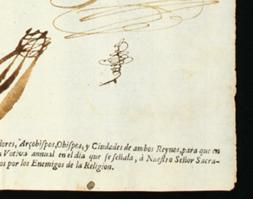 dores, Arçobispos, Obispos, y Ciudades de ambos Reynos, para que en
Votiva annual en el dia que se señala, à Nuestro Señor Sacra-
os por los Enemigos de la Religion.